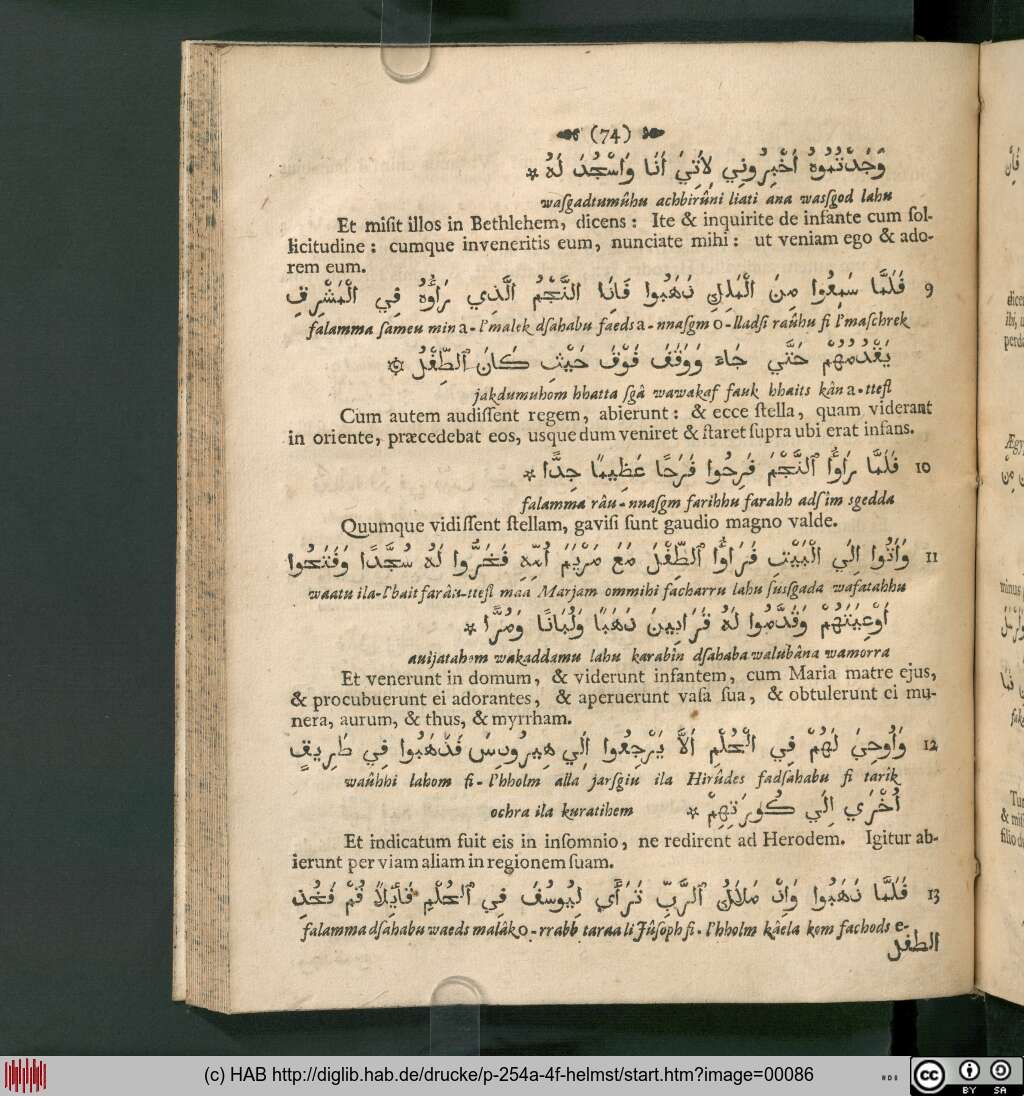 (74)
وَجَدْتُمُوهُ أَخْبِرُونِي لِأَتِيَ أَنَا وَأَسْجُدَ لَهُ *
wasgadtumûhu achbirûni liati ana wasſgod lahu
Et miſit illos in Bethlehem, dicens: Ite & inquirite de infante cum ſol-
licitudine: cumque inveneritis eum, nunciate mihi: ut veniam ego & ado-
rem eum.
9 فَلَمَّا سَمِعُوا مِنَ ٱلْمَلِكِ ذَهَبُوا فَإِذَا ٱلنَّجْمُ ٱلَّذِي رَأَوْهُ فِي ٱلْمَشْرِقِ
falamma ſameu min a-l'malek dſahabu faeds a-nnaſgm o-lladſi raûhu fi l'maſchrek
يَقْدُمُهُمْ حَتَّي جَاءَ وَوَقَفَ فَوْقَ حَيْثُ كَانَ ٱلطِّفْلُ
jakdumuhom hhatta ſgâ wawakaf fauk hhaits kân a-ttefl
Cum autem audiſſent regem, abierunt: & ecce ſtella, quam viderant
in oriente, præcedebat eos, usque dum veniret & ſtaret ſupra ubi erat infans.
10 فَلَمَّا رَأَوُا ٱلنَّجْمَ فَرِحُوا فَرَحًا عَظِيمًا جِدًّا *
falamma râu-nnaſgm farihhu farahh adſim sgedda
Quumque vidiſſent ſtellam, gaviſi ſunt gaudio magno valde.
11 وَأَتُوا إِلَي ٱلْبَيْتِ فَرَأَوُا ٱلطِّفْلَ مَعَ مَرْيَمَ أُمِّهِ فَخَرُّوا لَهُ سُجَّدًا وَفَتَحُوا
waatu ila-l'bait farâu-ttefl maa Marjam ommihi facharru lahu ſusſgada wafatahhu
أَوْعِيَتَهُمْ وَقَدَّمُوا لَهُ قَرَابِينَ ذَهَبًا وَلُبَانًا وَمُرًّا *
auijatahom wakaddamu lahu karabîn dſahaba walubâna wamorra
Et venerunt in domum, & viderunt infantem, cum Maria matre ejus,
& procubuerunt ei adorantes, & aperuerunt vaſa ſua, & obtulerunt ei mu-
nera, aurum, & thus, & myrrham.
12 وَأُوحِيَ لَهُمْ فِي ٱلْحُلْمِ أَلَّا يَرْجِعُوا إِلَي هِيرُودِسَ فَذَهَبُوا فِي طَرِيقٍ
waûhhi lahom fi-l'hholm alla jarſgiu ila Hirûdes fadſahabu fi tarîk
أُخْرَي إِلَي كُورَتِهِمْ *
ochra ila kuratihem
Et indicatum fuit eis in inſomnio, ne redirent ad Herodem. Igitur ab-
ierunt per viam aliam in regionem ſuam.
13 فَلَمَّا ذَهَبُوا وَإِذْ مَلَاكُ ٱلرَّبِّ تَرَأَي لِيُوسُفَ فِي ٱلْحُلْمِ قَائِلًا قُمْ فَخُذِ
falamma dſahabu waeds malâk o-rrabb taraa li Jûſoph fi-l'hholm kâela kom fachods e-
الطفل
(c) HAB http://diglib.hab.de/drucke/p-254a-4f-helmst/start.htm?image=00086
HAB
cc BY SA